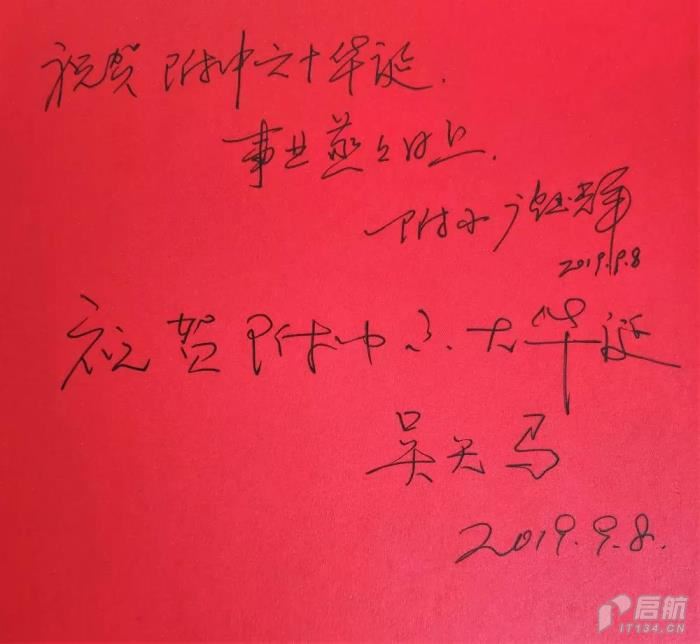 祝贺附中六十华诞.
事业蒸蒸日上.
附小
2019.9.8
祝贺附中六十华诞
吴天马
2019.9.8.
启航
IT134.CN